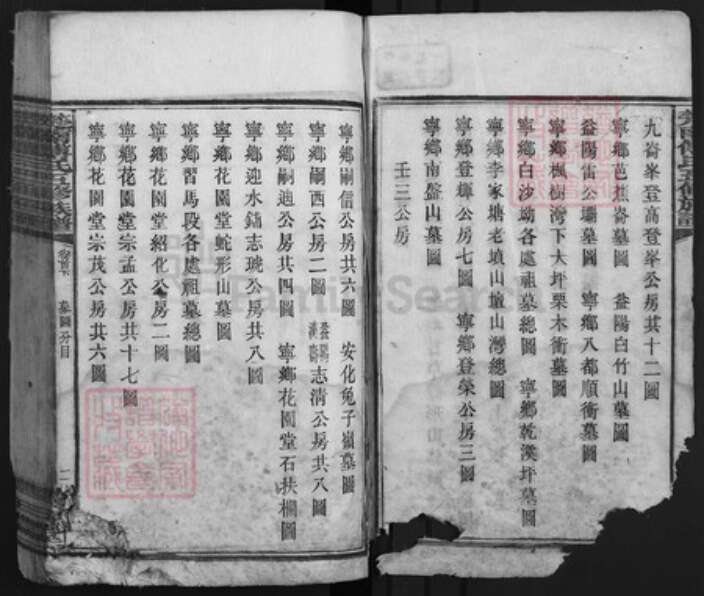 九嵛峯登高登峯公房共十二圖
寧鄉芭蕉嵛墓圖 益陽白竹山墓圖
益陽雷公壩墓圖 寧鄉八都順衝墓圖
寧鄉楓樹灣下大坪栗木衝墓圖
寧鄉白沙坳各處祖墓總圖 寧鄉乾漢坪墓圖
寧鄉李家塘老墳山墳山灣總圖
寧鄉登輝公房七圖 寧鄉登榮公房三圖
寧鄉南盤山墓圖
壬三公房
寧鄉嗣信公房共六圖 安化兔子嶺墓圖
寧鄉嗣西公房二圖 益陽漢壽志清公房共八圖
寧鄉嗣迪公房共四圖 寧鄉花園堂石扶欄圖
寧鄉迎水鋪志琥公房共八圖
寧鄉花園堂蛇形山墓圖
寧鄉習馬段各處祖墓總圖
寧鄉花園堂紹化公房二圖
寧鄉花園堂宗孟公房共十七圖
寧鄉花園堂宗茂公房共六圖
氏五修族譜
卷首下
墓圖分目
二
FamilySearch